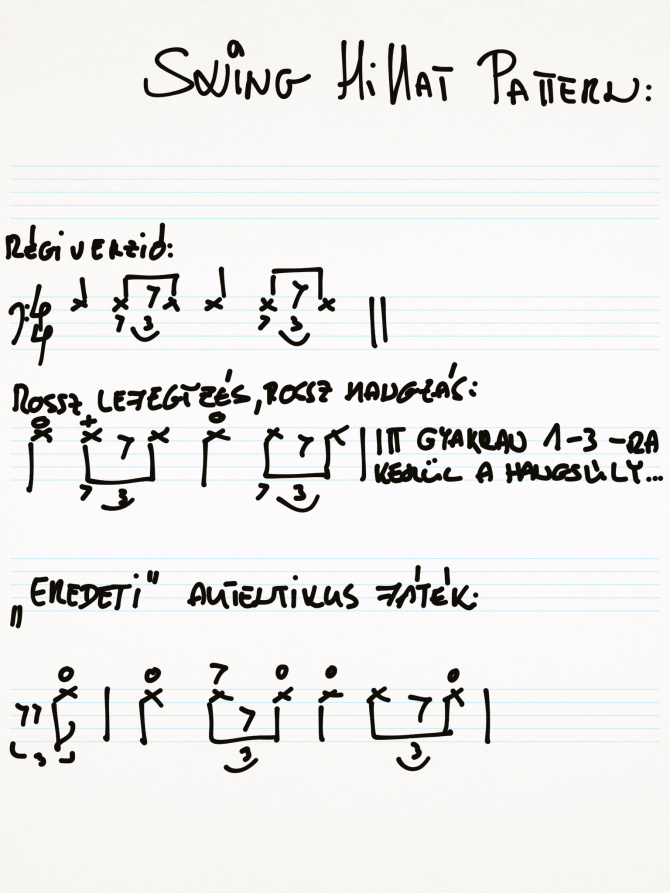 SWING HiHAT PATTERN:
RÉGI VERZIÓ:
ROSSZ LEJEGYZÉS, ROSSZ HANGZÁS:
ITT GYAKRAN 1-3-RA
KERÜL A HANGSÚLY...
„EREDETI" AUTENTIKUS JÁTÉK: